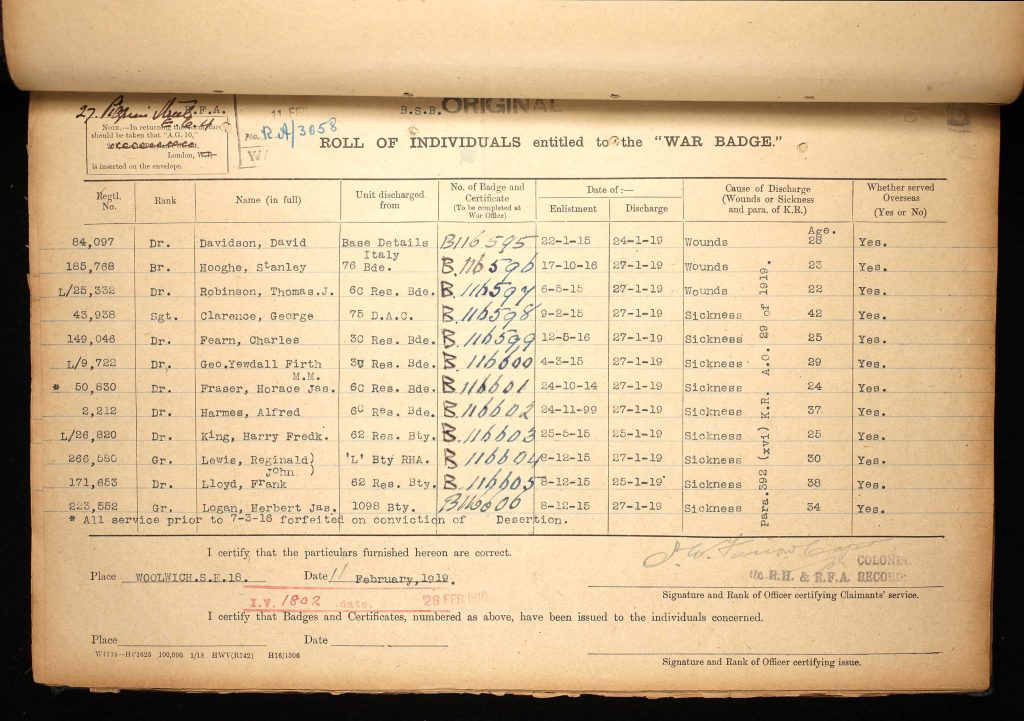 27, Pilgrim Street R.F.A. 11 FEB B.S.B. ORIGINAL
E.C.4.
NOTE.—In returning
should be taken that "A.G. 10,"
London,
is inserted on the envelope.
No. R.A/3058
ROLL OF INDIVIDUALS entitled to the "WAR BADGE."
Regtl. No. Rank Name (in full) Unit discharged from No. of Badge and Certificate (To be completed at War Office) Date of :— Enlistment Discharge Cause of Discharge (Wounds or Sickness and para. of K.R.) Whether served Overseas (Yes or No)
Age.
84,097 Dr. Davidson, David Base Details Italy B116595 22-1-15 24-1-19 Wounds 28 Yes.
185,768 Br. Hooghe, Stanley 76 Bde. B.116596 17-10-16 27-1-19 Wounds 23 Yes.
L/25,332 Dr. Robinson, Thomas.J. 6C Res. Bde. B.116597 6-5-15 27-1-19 Wounds 22 Yes.
43,938 Sgt. Clarence, George 75 D.A.C. B.116598 9-2-15 27-1-19 Sickness 42 Yes.
149,046 Dr. Fearn, Charles 3C Res. Bde. B.116599 12-5-16 27-1-19 Sickness 25 Yes.
L/9,722 Dr. Geo.Yewdall Firth M.M. Res. Bde. B.116600 4-3-15 27-1-19 Sickness 29 Yes.
* 50,830 Dr. Fraser, Horace Jas. 6C Res. Bde. B.116601 24-10-14 27-1-19 Sickness 24 Yes.
2,212 Dr. Harmes, Alfred 6C Res. Bde. B.116602 24-11-99 27-1-19 Sickness 37 Yes.
L/26,820 Dr. King, Harry Fredk. 62 Res. Bty. B.116603 25-5-15 25-1-19 Sickness 25 Yes.
266,580 Gr. Lewis, Reginald) John ) 'L' Bty RHA. B.116604 8-12-15 27-1-19 Sickness 30 Yes.
171,653 Dr. Lloyd, Frank 62 Res. Bty. B.116605 8-12-15 25-1-19 Sickness 38 Yes.
223,552 Gr. Logan, Herbert Jas. 1098 Bty. 8-12-15 27-1-19 Sickness 34 Yes.
Para.392 (xvi) K.R. A.O. 29 of 1919.
* All service prior to 7-3-16 forfeited on conviction of Desertion.
I certify that the particulars furnished hereon are correct.
Place WOOLWICH.S.E.18. Date 11 February,1919.
COLONEL
R.H. & R.F.A. RECORDS
Signature and Rank of Officer certifying Claimants' service.
I.V. 1802 date. 26 FEB 1919
I certify that Badges and Certificates, numbered as above, have been issued to the individuals concerned.
Place Date
100,000 1/18 HWV(R542) H16/1306
Signature and Rank of Officer certifying issue.